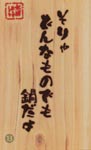 そりゃ
どんなものでも
鍋だよ